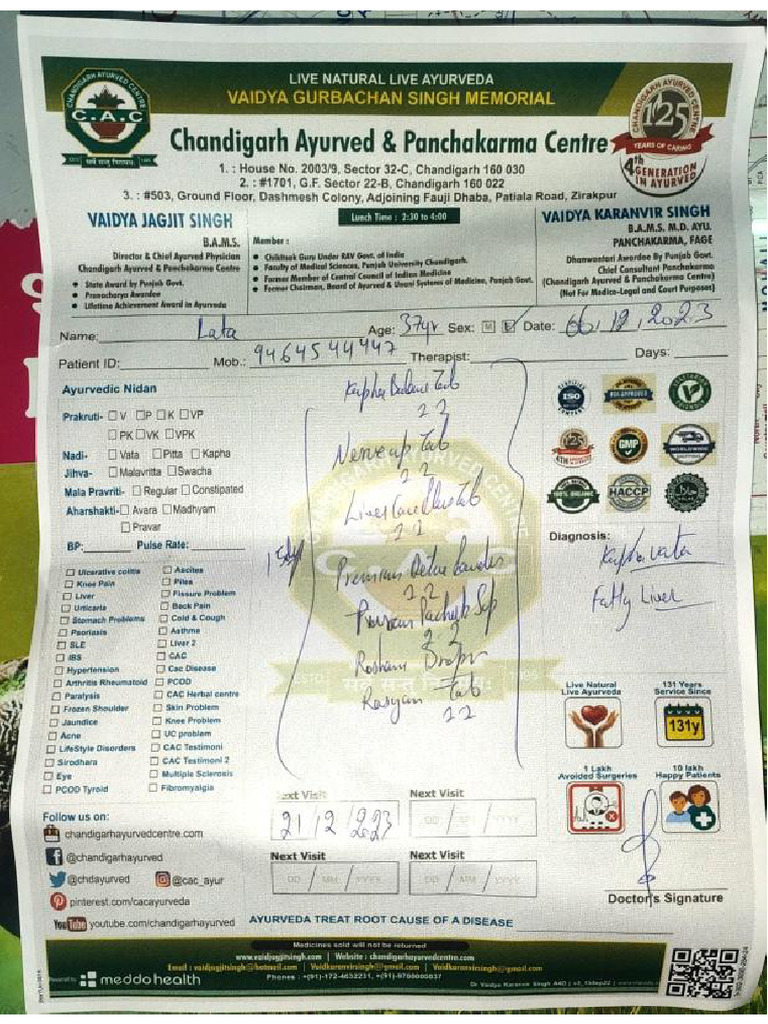 LIVE NATURAL LIVE AYURVEDA
VAIDYA GURBACHAN SINGH MEMORIAL
CHANDIGARH AYURVED CENTRE
C.A.C
सर्वे सन्तु निरामयाः
CHANDIGARH AYURVED CENTRE
125
YEARS OF CARING
4th GENERATION IN AYURVED
Chandigarh Ayurved & Panchakarma Centre
1. : House No. 2003/9, Sector 32-C, Chandigarh 160 030
2. : #1701, G.F. Sector 22-B, Chandigarh 160 022
3. : #503, Ground Floor, Dashmesh Colony, Adjoining Fauji Dhaba, Patiala Road, Zirakpur
VAIDYA JAGJIT SINGH
B.A.M.S.
Director & Chief Ayurved Physician
Chandigarh Ayurved & Panchakarma Centre
State Award by Punjab Govt.
Pranacharya Awardee
Lifetime Achievement Award in Ayurveda
Lunch Time : 2:30 to 4:00
Member :
Chikitsak Guru Under RAV Govt. of India
Faculty of Medical Sciences, Punjab University Chandigarh.
Former Member of Central Council of Indian Medicine
Former Chairman, Board of Ayurved & Unani Systems of Medicine, Punjab Govt.
VAIDYA KARANVIR SINGH
B.A.M.S. M.D. AYU.
PANCHAKARMA, FAGE
Dhanwantari Awardee By Punjab Govt.
Chief Consultant Panchakarma
(Chandigarh Ayurved & Panchakarma Centre)
(Not For Medico-Legal and Court Purposes)
Name: Lata Age: 37yr Sex: M F Date: 06.12.2023
Patient ID: Mob.: 9464544447 Therapist: Days:
Ayurvedic Nidan
Prakruti- V P K VP
PK VK VPK
Nadi- Vata Pitta Kapha
Jihva- Malavritta Swacha
Mala Pravriti- Regular Constipated
Aharshakti- Avara Madhyam
Pravar
BP: Pulse Rate:
Ulcerative colitis
Knee Pain
Liver
Urticaria
Stomach Problems
Psoriasis
SLE
IBS
Hypertension
Arthritis Rheumatoid
Paralysis
Frozen Shoulder
Jaundice
Acne
LifeStyle Disorders
Sirodhara
Eye
PCOD Tyroid
Ascites
Piles
Fissure Problem
Back Pain
Cold & Cough
Asthma
Liver 2
CAC
Cac Disease
PCOD
CAC Herbal centre
Skin Problem
Knee Problem
UC problem
CAC Testimoni
CAC Testimoni 2
Multiple Sclerosis
Fibromyalgia
Kapha Balance Tab
2 2
Nerve up Tab
2 2
Liver Care Plus Tab
2 2
Premium Detox Powder
2 2
2 2
Roshani Drops
Rasyan Tab
2 2
ISO
GMP
WORLDWIDE
100% ORGANIC
HACCP
Diagnosis:
Kapha vata
Fatty Liver
Live Natural
Live Ayurveda
131 Years
Service Since
131y
1 Lakh
Avoided Surgeries
10 lakh
Happy Patients
Next Visit
21/12/2023
Next Visit
DD / MM / YYYY
Next Visit
DD / MM / YYYY
Next Visit
DD / MM / YYYY
Doctor's Signature
Follow us on:
chandigarhayurvedcentre.com
@chandigarhayurved
@chdayurved @cac_ayur
pinterest.com/cacayurveda
YouTube youtube.com/chandigarhayurved
AYURVEDA TREAT ROOT CAUSE OF A DISEASE
Medicines sold will not be returned
www.vaidjagjitsingh.com | Website : chandigarhayurvedcentre.com
Email : vaidjagjitsingh@hotmail.com | Vaidkaranvirsingh@gmail.com
Phones : +(91)-172-4632231, +(91)-9780000037
meddohealth